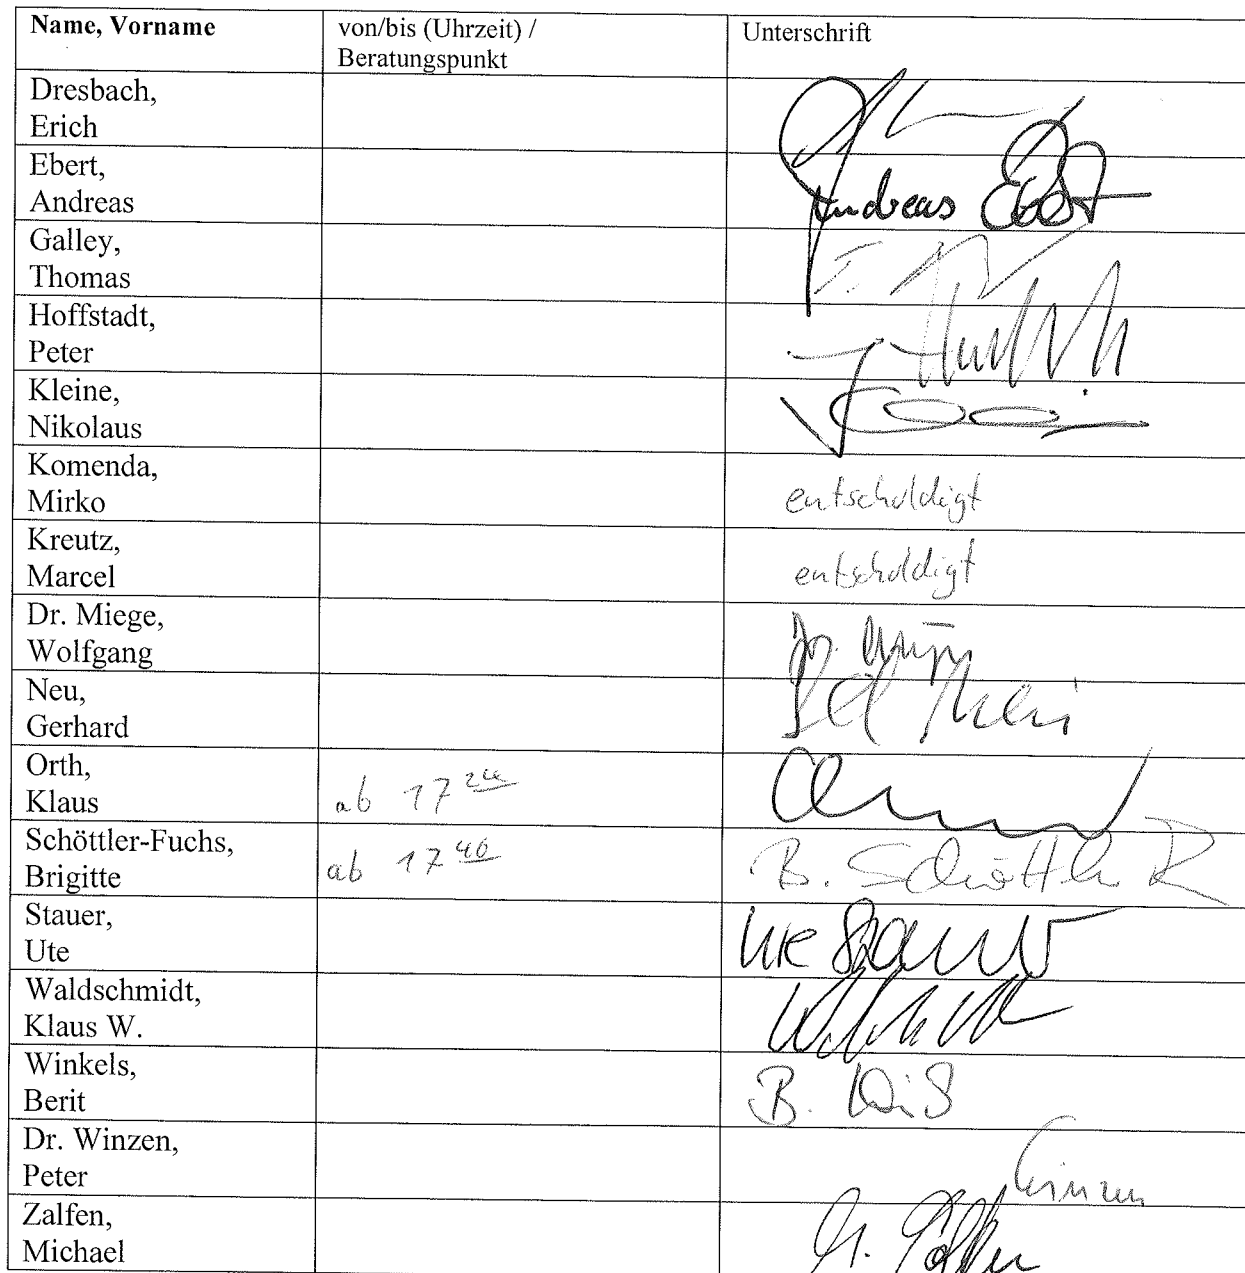 Name, Vorname von/bis (Uhrzeit) / Unterschrift
Beratungspunkt
Dresbach,
Erich
Ebert,
Andreas Andreas Ebert
Galley,
Thomas
Hoffstadt,
Peter
Kleine,
Nikolaus
Komenda,
Mirko entschuldigt
Kreutz,
Marcel entschuldigt
Dr. Miege,
Wolfgang
Neu,
Gerhard
Orth,
Klaus ab 17
Schöttler-Fuchs,
Brigitte ab 17 40 B. Schöttler
Stauer,
Ute Ute Stauer
Waldschmidt,
Klaus W.
Winkels,
Berit B.
Dr. Winzen,
Peter Winzen
Zalfen,
Michael